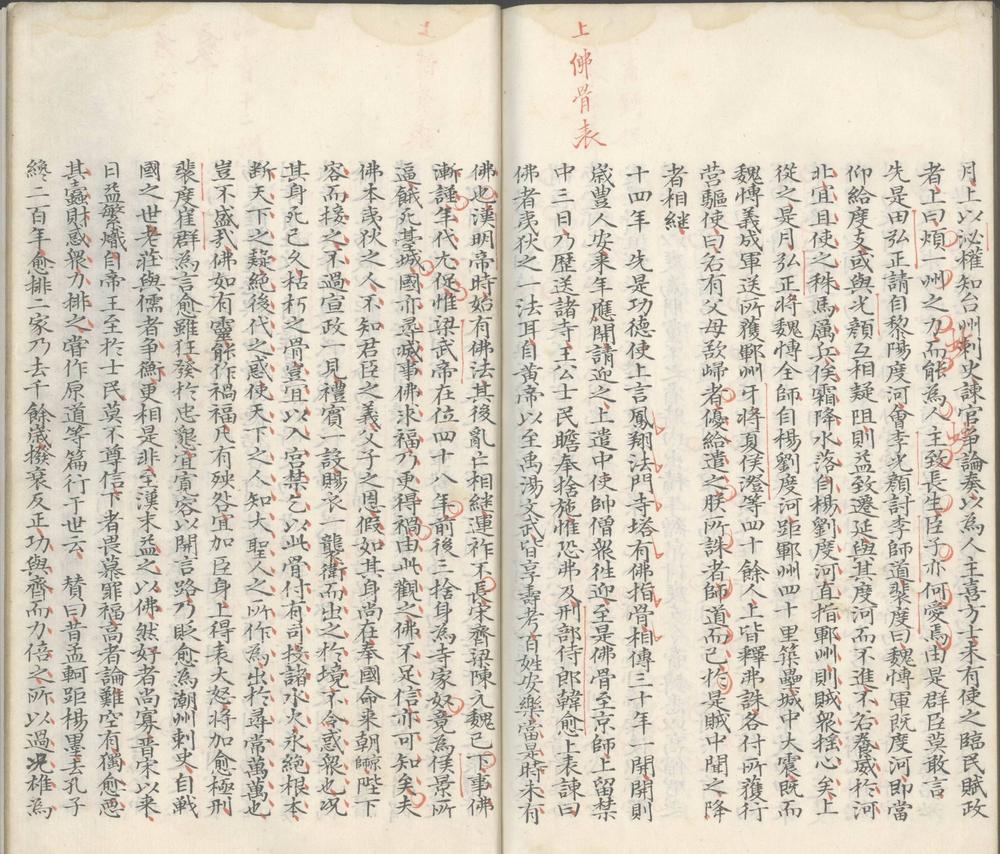 上佛骨表
月上以泌權知台州刺史諫官爭論奏以爲人主喜方士未有使之臨民賦政
者上曰煩一州之力而能爲人主致長生臣子亦何愛焉由是群臣莫敢言
先是田弘正請自黎陽度河會李光顏討李師道裴度曰魏愽軍既度河即當
仰給度支或與光顏互相疑阻則益致遷延與其度河而不進不若養威於河
北宜且使之秣馬厲兵俟霜降水落自楊劉度河直指鄆州則賊衆搖心矣上
從之是月弘正將魏愽全師自楊劉度河距鄆州四十里築壘城中大震既而
魏愽義成軍送所獲鄆州牙將夏侯澄等四十餘人上皆釋弗誅各付所獲行
营驅使曰若有父母欲歸者優給遣之朕所誅者師道而已於是賊中聞之降
者相継
十四年 先是功德使上言鳳翔法門寺塔有佛指骨相傳三十年一開開則
歲豊人安来年應開請迎之上遣中使帥僧衆徃迎至是佛骨至京師上留禁
中三日乃歷送諸寺王公士民瞻奉捨施惟恐弗及刑部侍郎韓愈上表諫曰
佛者夷狄之一法耳自黃帝以至禹湯文武皆享壽考百姓安樂當是時未有
佛也漢明帝時始有佛法其後亂亡相継運祚不長宋齊梁陳元魏已下事佛
漸謹年代尤促惟梁武帝在位四十八年前後三捨身爲寺家奴竟爲侯景所
逼餓死臺城國亦尋滅事佛求福乃更得禍由此觀之佛不足信亦可知矣夫
佛本夷狄之人不知君臣之義父子之恩假如其身尚在奉國命来朝京師陛下
容而接之不過宣政一見禮賓一設賜衣一襲衛而出之於境不令惑衆也况
其身死已久枯朽之骨豈宜以入宮禁乞以此骨付有司投諸水火永絕根本
断天下之疑絕後代之惑使天下之人知大聖人之所作爲出於尋常萬萬也
豈不盛㢤佛如有靈能作禍福凡有殃咎宜加臣身上得表大怒將加愈極刑
裴度崔群爲言愈雖狂發於忠懇宜寬容以開言路乃貶愈爲潮州刺史自戰
國之世老莊與儒者爭衡更相是非至漢末益之以佛然好者尚寡晋宋以来
日益繁熾自帝王至於士民莫不尊信下者畏慕罪福高者論難空有獨愈惡
其蠹財惑衆力排之嘗作原道等篇行于世云 賛曰昔孟軻距楊墨去孔子
纔二百年愈排二家乃去千餘歲撥衰反正功與齊而力倍之所以過况雄爲